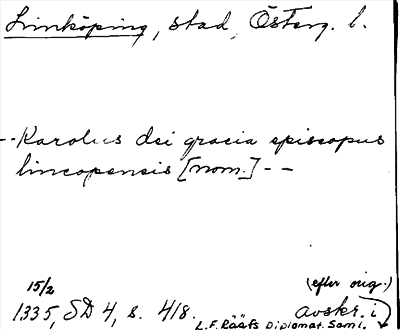 Linköping, stad, Österg. l.
--Karolus dei gracia episcopus
lincopensis [nom.]--
15/2 (efter orig.)
1335, SD 4, s. 418. avskr. i
L.F. Rääfs Diplomat. Saml.